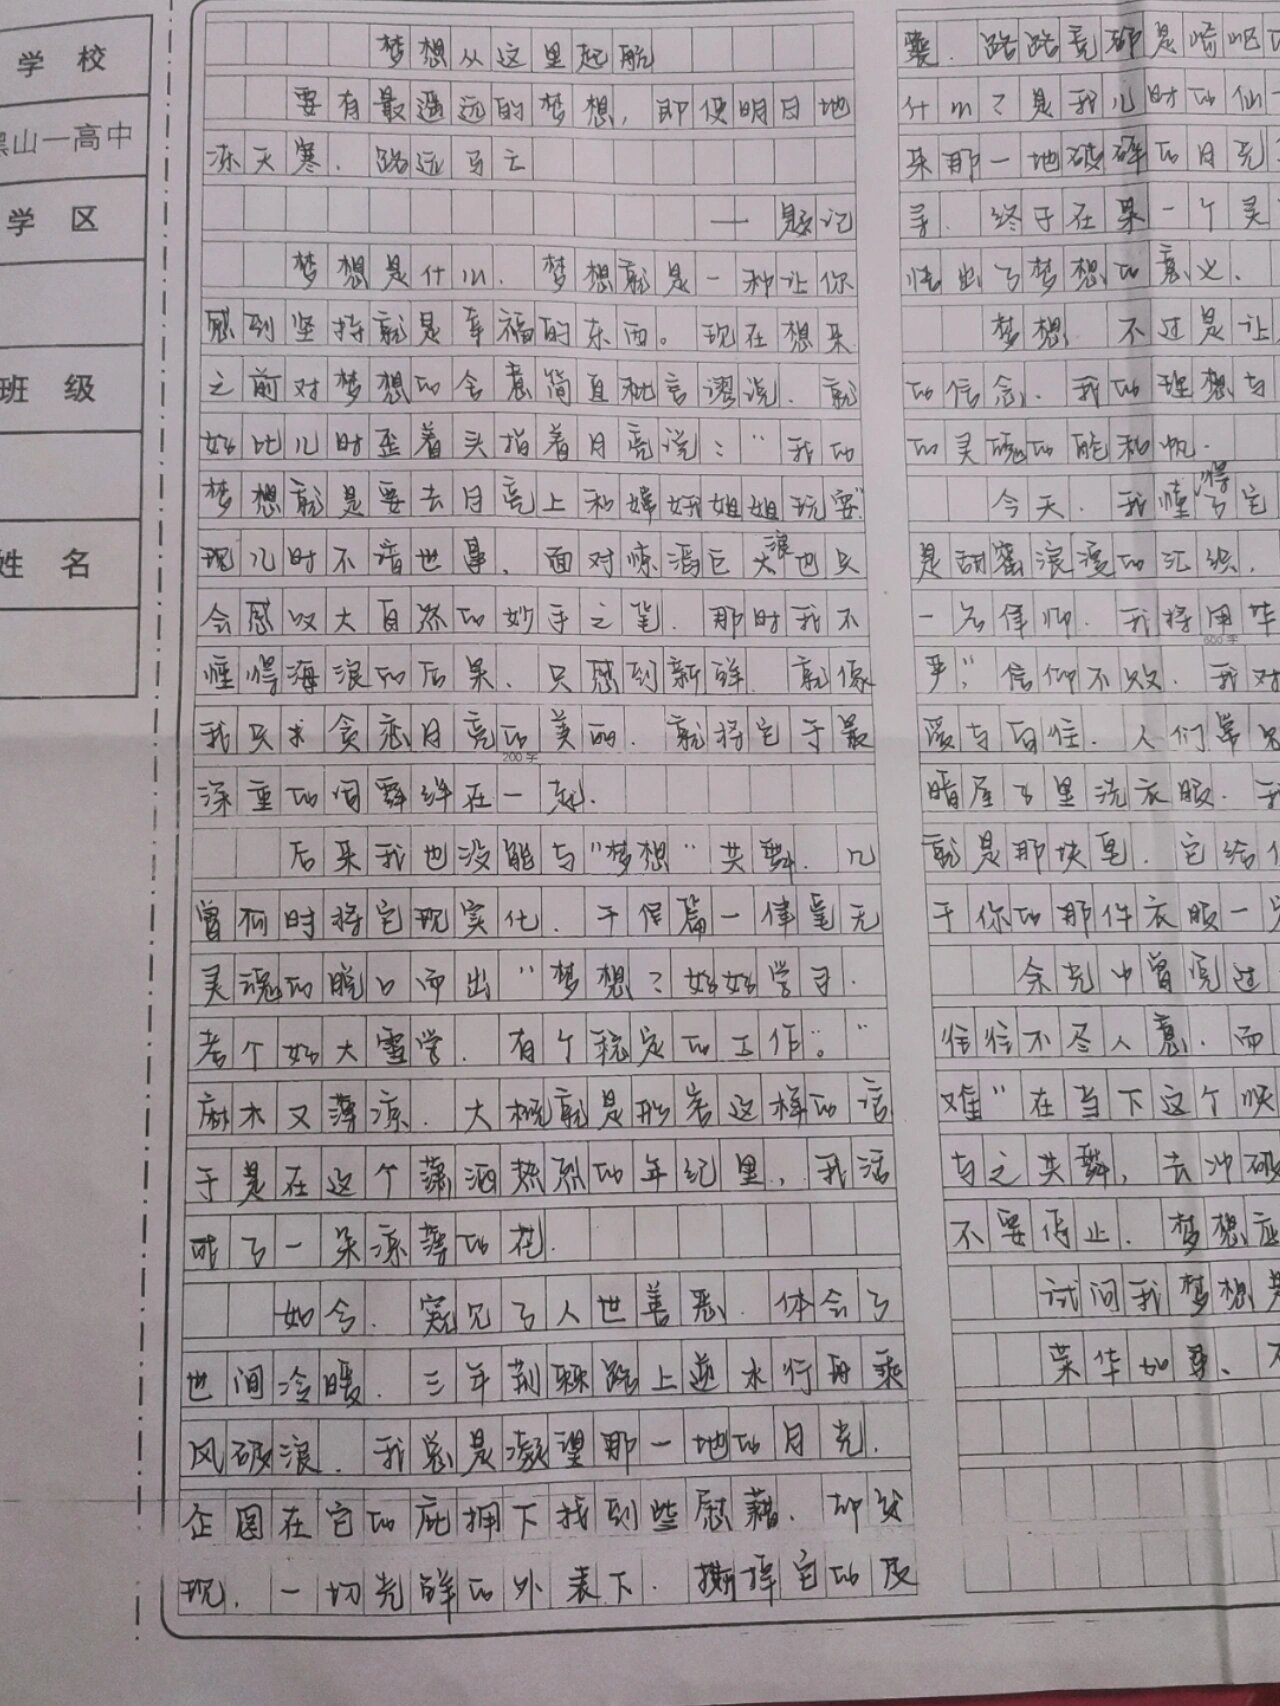 学校
黑山一高中
学区
班级
姓名
梦想从这里起航
要有最遥远的梦想，即使明日地
冻天寒．路远马亡
——题记
梦想是什么．梦想就是一种让你
感到坚持就是幸福的东西。现在想来
之前对梦想的含意简直秕言谬说．就
好比儿时歪着头指着月亮说：“我的
梦想就是要去月亮上和嫦娥姐姐玩耍”
现儿时不谙世事．面对惊涛巨大浪也只
会感叹大自然的妙手之笔．那时我不
懂得海浪的后果．只感到新鲜．就像
我只求贪恋月亮的美丽．就将它于最
深重的 在一起．
后来我也没能与“梦想”共舞．几
曾何时将它现实化．千 篇一律毫无
灵魂的脱口而出“梦想？好好学习．
考个好大学．有个稳定的工作。”
麻木又薄凉．大概就是形容这样的话
于是在这个潇洒热烈的年纪里，我活
成了一朵凉薄的花．
如今．窥见了人世善恶．体会了
世间冷暖．三年荆棘路上逆水行舟乘
风破浪．我总是凝望那一地的月光．
企图在它的庇拥下找到些慰藉．却发
现．一切光鲜的外表下．撕掉它的皮
囊．路路竟都是
什么？是我儿时的仙
来那一地破碎的月光
寻．终于在某一个灵
悟出了梦想的意义．
梦想 不过是让
的信念．我的理想与
的灵魂的舵和帆．
今天．我懂得了它
是甜蜜浪漫的汇织．
一名律师．我将用毕
600字
严，”信仰不败．我对
200字
爱与向往．人们常
暗屋子里洗衣服．我
就是那块皂．它给
于你的那件衣服一
余光中曾 过
往往不尽人意．而
难”在当下这个顺
与之共舞，去冲破
不要停止．梦想应
试问我梦想是
荣华如 、不